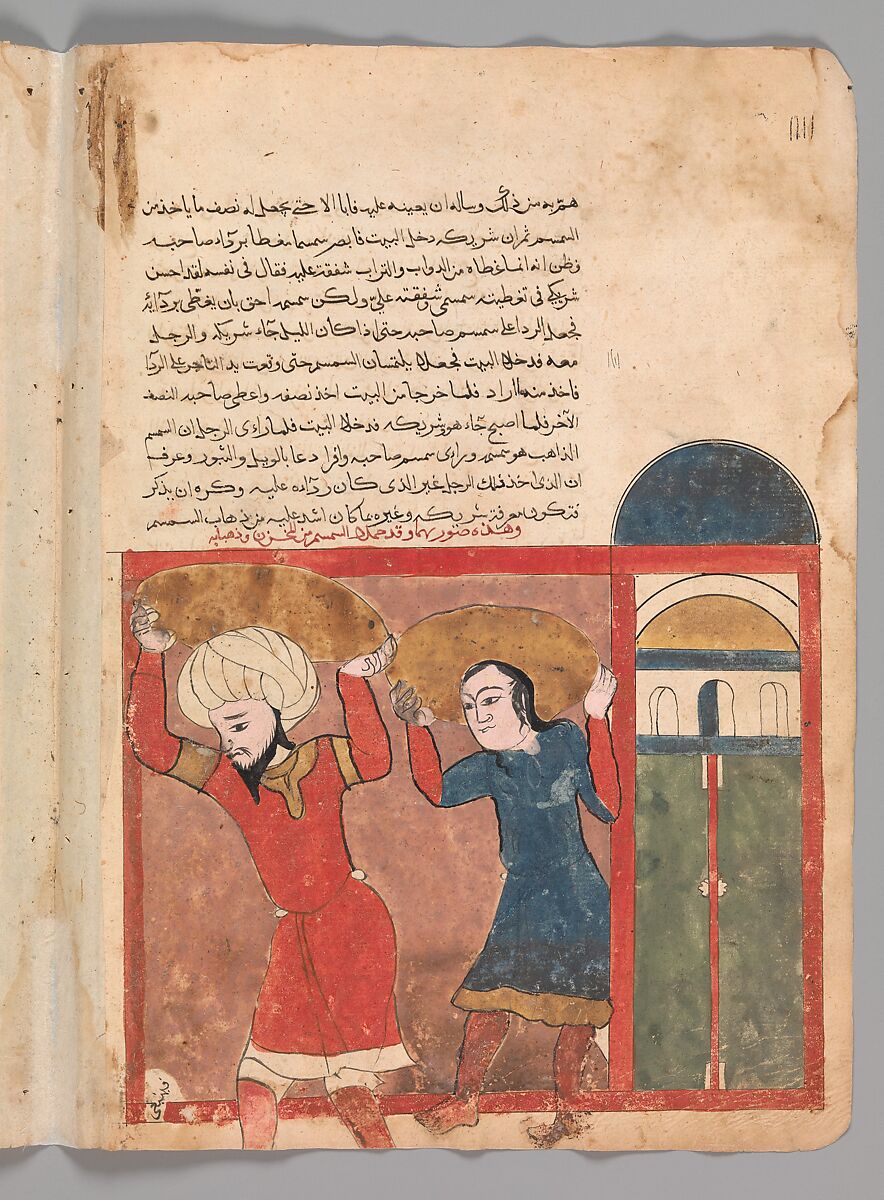 هم به من ذلك وساله ان يعينه عليه فابا الا حتي يجعل له نصف ما ياخذ من
السمسم ثم ان شريكه دخل البيت فابصر سمسما مغطا برداء صاحبه
فظن انه انما غطاه من الدواب والتراب شفقة عليه فقال في نفسه لقد احسن
شريكي في تغطيته سمسمي وشفقته علي ولكن سمسمه احق بان يغطى بردائه
فجعل الردا على سمسم صاحبه حتى اذا كان الليل جاء شريكه والرجل
معه فدخلا البيت فجعلا يلتمسان السمسم حتى وقعت يد التاجر على الردا
فاخذ منه ما اراد فلما خرجا من البيت اخذ نصفه واعطى صاحبه النصف
الآخر فلما اصبح جاء هو وشريكه فدخلا البيت فلما راى الرجل ان السمسم
الذاهب هو سمسمه وراى سمسم صاحبه وافرا دعا بالويل والثبور وعرف
ان الذى اخذ ذلك الرجل غير الذى كان رداءه عليه وكره ان يذكر
فتكون معرفة شريكه وغيره بما كان اشد عليه من ذهاب السمسم
وهذه صورتهما وقد حملا السمسم من المخزن وذهبا به